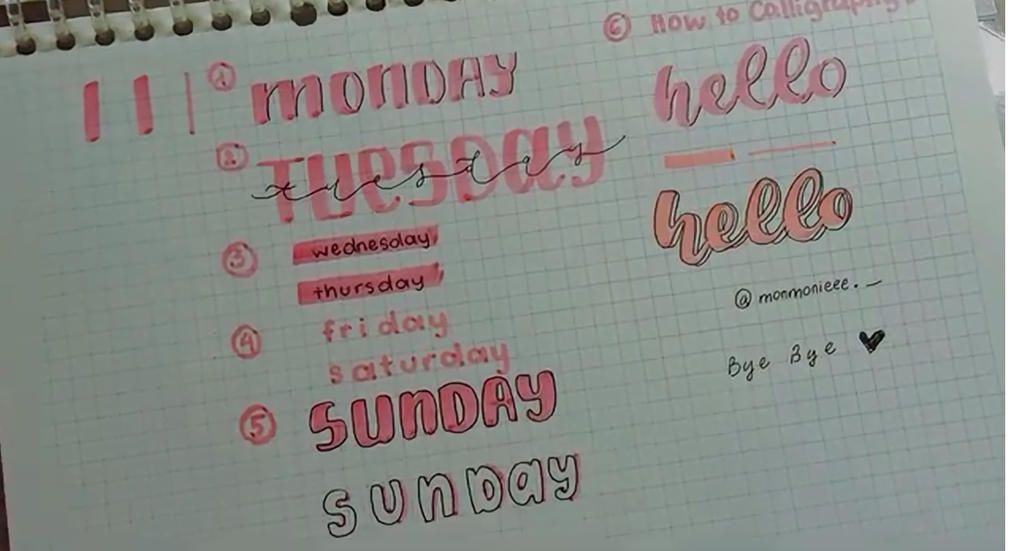 ① MONDAY
② TUESDAY
tuesday
③ wednesday
thursday
④ friday
saturday
⑤ SUNDAY
sunday
⑥ How to Calligraphy
hello
hello
@monmonieee._
Bye Bye ♥